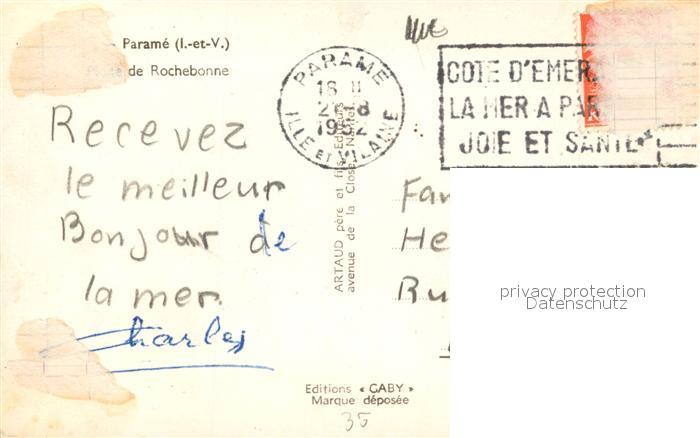 Paramé (I.-et-V.)
de Rochebonne
PARAMÉ
ILLE ET VILAINE
COTE D'EMER
LA MER A PAR
JOIE ET SANTE
Recevez
le meilleur
Bonjour de
la mer
Charles
ARTAUD père et fils Editeurs
avenue de la Close Nantes
Fam
He
Ru
privacy protection
Datenschutz
Editions « GABY »
Marque déposée
35